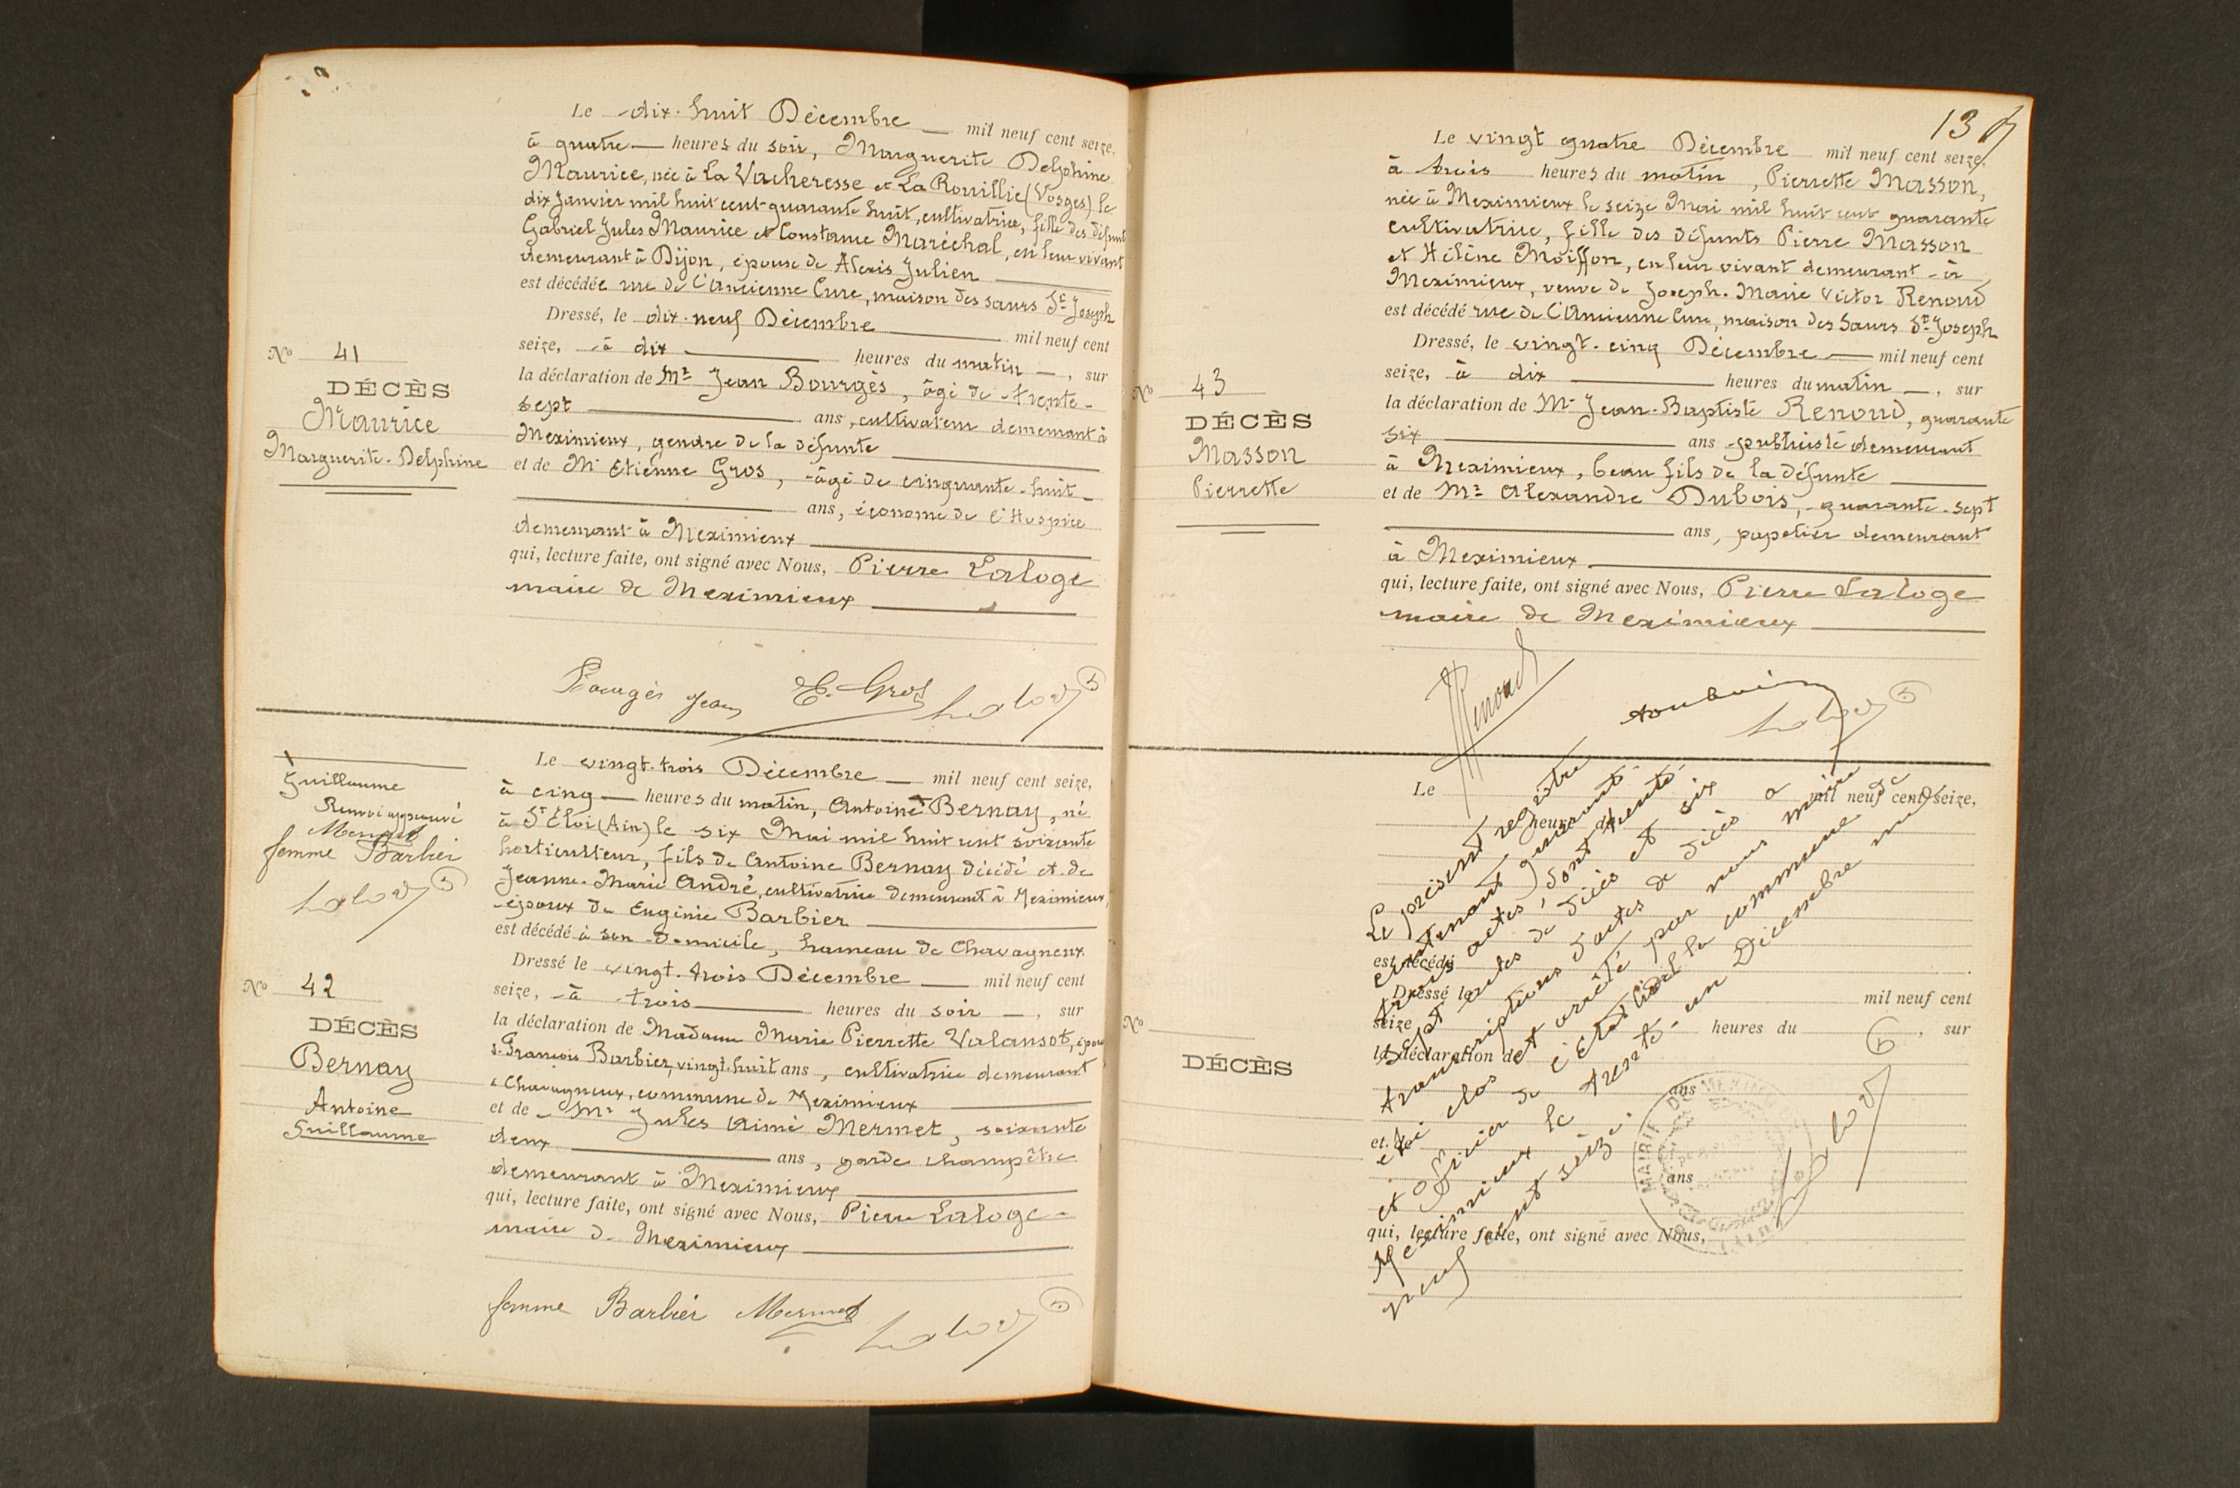 Le dix-huit Décembre — mil neuf cent seize,
à quatre — heures du soir, Marguerite Delphine
Maurice, née à La Vacheresse et La Rouillie (Vosges) le
dix Janvier mil huit cent quarante huit, cultivatrice, fille des défunts
Gabriel Jules Maurice et Constance Maréchal, en leur vivant
demeurant à Dijon, épouse de Alexis Julien
est décédée rue de l'Ancienne Cure, maison des sœurs St Joseph
Dressé, le dix-neuf Décembre — mil neuf cent
seize, à dix — heures du matin —, sur
la déclaration de Mr Jean Bourgès, âgé de trente-
sept — ans, cultivateur demeurant à
Meximieux, gendre de la défunte
et de Mr Etienne Gros, âgé de cinquante-huit
ans, économe de l'Hospice
demeurant à Meximieux
qui, lecture faite, ont signé avec Nous, Pierre Laloge
maire de Meximieux
No 41
DÉCÈS
Maurice
Marguerite-Delphine
Bourgès Jean E. Gros Laloge
Guillaume
Renvoi approuvé
Mermet
femme Barbier
Laloge
Le vingt-trois Décembre — mil neuf cent seize,
à cinq — heures du matin, Antoine Bernay, né
à St Éloi (Ain) le six Mai mil huit cent soixante
horticulteur, fils de Antoine Bernay décédé et de
Jeanne-Marie André, cultivatrice demeurant à Meximieux,
époux de Eugénie Barbier
est décédé à son domicile, hameau de Chavagneux
Dressé le vingt-trois Décembre — mil neuf cent
seize, à trois — heures du soir —, sur
la déclaration de Madame Marie Pierrette Valansot, épou
François Barbier, vingt-huit ans, cultivatrice demeurant
à Chavagneux, commune de Meximieux
et de Mr Jules Aimé Mermet, soixante
deux — ans, garde champêtre
demeurant à Meximieux
qui, lecture faite, ont signé avec Nous, Pierre Laloge
maire de Meximieux
No 42
DÉCÈS
Bernay
Antoine
Guillaume
femme Barbier Mermet Laloge
13
Le vingt quatre Décembre mil neuf cent seize,
à trois heures du matin, Pierrette Masson,
née à Meximieux le seize Mai mil huit cent quarante
cultivatrice, fille des défunts Pierre Masson
et Hélène Moiffon, en leur vivant demeurant à
Meximieux, veuve de Joseph-Marie Victor Renoud
est décédé rue de l'Ancienne Cure, maison des Sœurs St Joseph
Dressé, le vingt-cinq Décembre — mil neuf cent
seize, à dix — heures du matin —, sur
la déclaration de Mr Jean-Baptiste Renoud, quarante
six — ans publiciste demeurant
à Meximieux, beau fils de la défunte
et de Mr Alexandre Dubois, quarante-sept
ans, papetier demeurant
à Meximieux
qui, lecture faite, ont signé avec Nous, Pierre Laloge
maire de Meximieux
No 43
DÉCÈS
Masson
Pierrette
Renoud Laloge
Le mil neuf cent seize,
heure du
est décédé
Dressé le mil neuf cent
seize heures du , sur
la déclaration de
ans
et de
ans
qui, lecture faite, ont signé avec Nous,
No
DÉCÈS
Le présent registre
contenant quarante-
trois actes, sont trente-
sept actes de décès et six
transcriptions d'actes de décès a
été clos et arrêté par nous maire
et officier de l'état civil de la commune de
Meximieux le trente-un Décembre mil
neuf cent seize.
Laloge
MAIRIE DE MEXIMIEUX